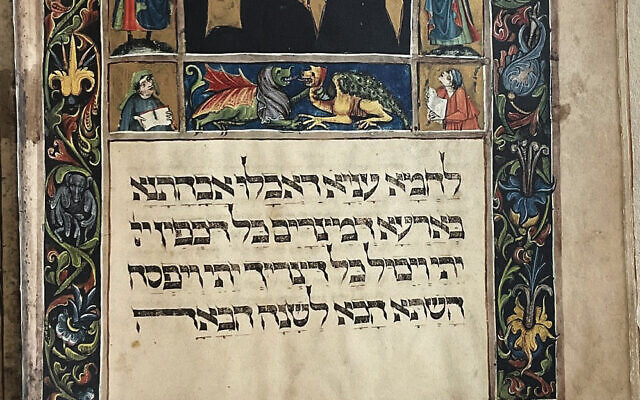 לחמא עניא דאכלו אבהתנא
בארעא דמצרים כל דכפין יי
יתי ויכול כל דצריך יתי ויפסח
השתא הכא לשנה הבאה